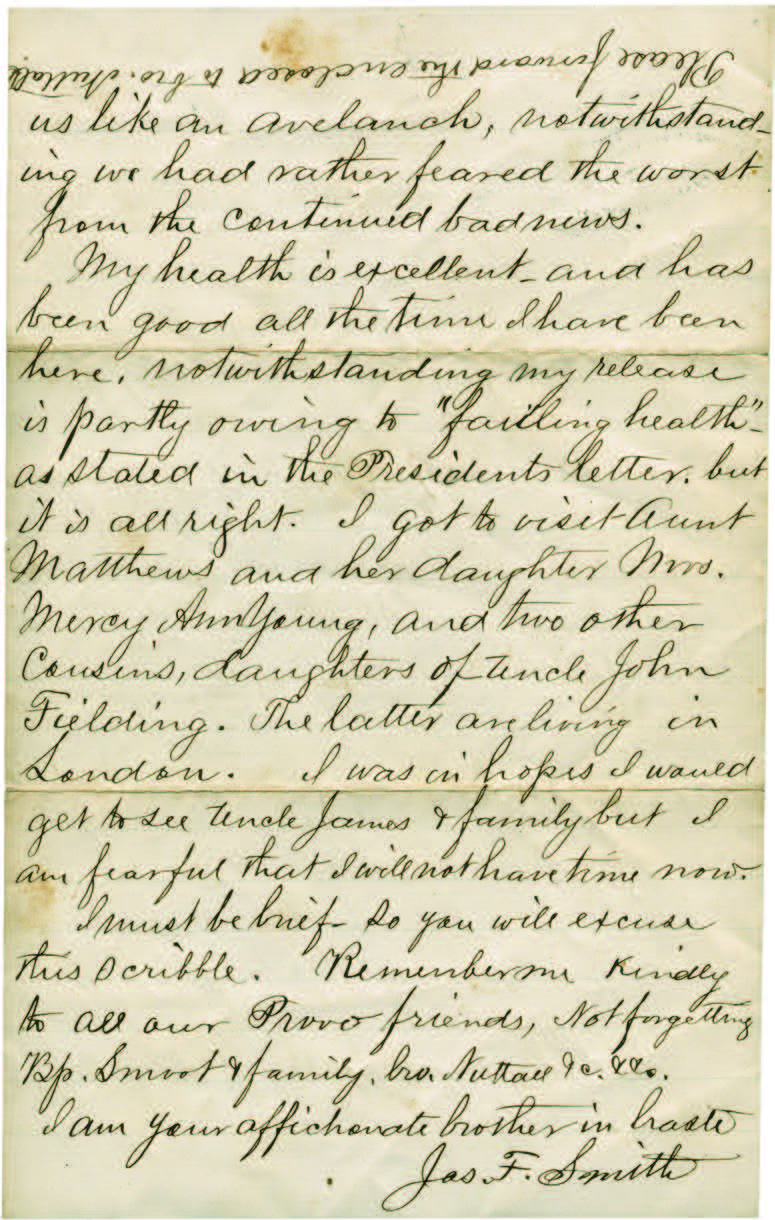 Please forward the enclosed to bro. Nuttall
us like an avelanch, notwithstand-
ing we had rather feared the worst
from the continued bad news.
My health is excellent - and has
been good all the time I have been
here, notwithstanding my release
is partly owing to "failling health" -
as stated in the Presidents letter. but
it is all right. I got to visit Aunt
Matthews and her daughter Mrs.
Mercy Ann Young, and two other
Cousins, daughters of Uncle John
Fielding. The latter are living in
London. I was in hopes I would
get to see Uncle James & family but I
am fearful that I will not have time now.
I must be brief - so you will excuse
this scribble. Remember me kindly
to all our Provo friends, Not forgetting
Bp. Smoot & family, bro. Nuttall &c. &c.
I am your affichonate brother in haste
Jos. F. Smith